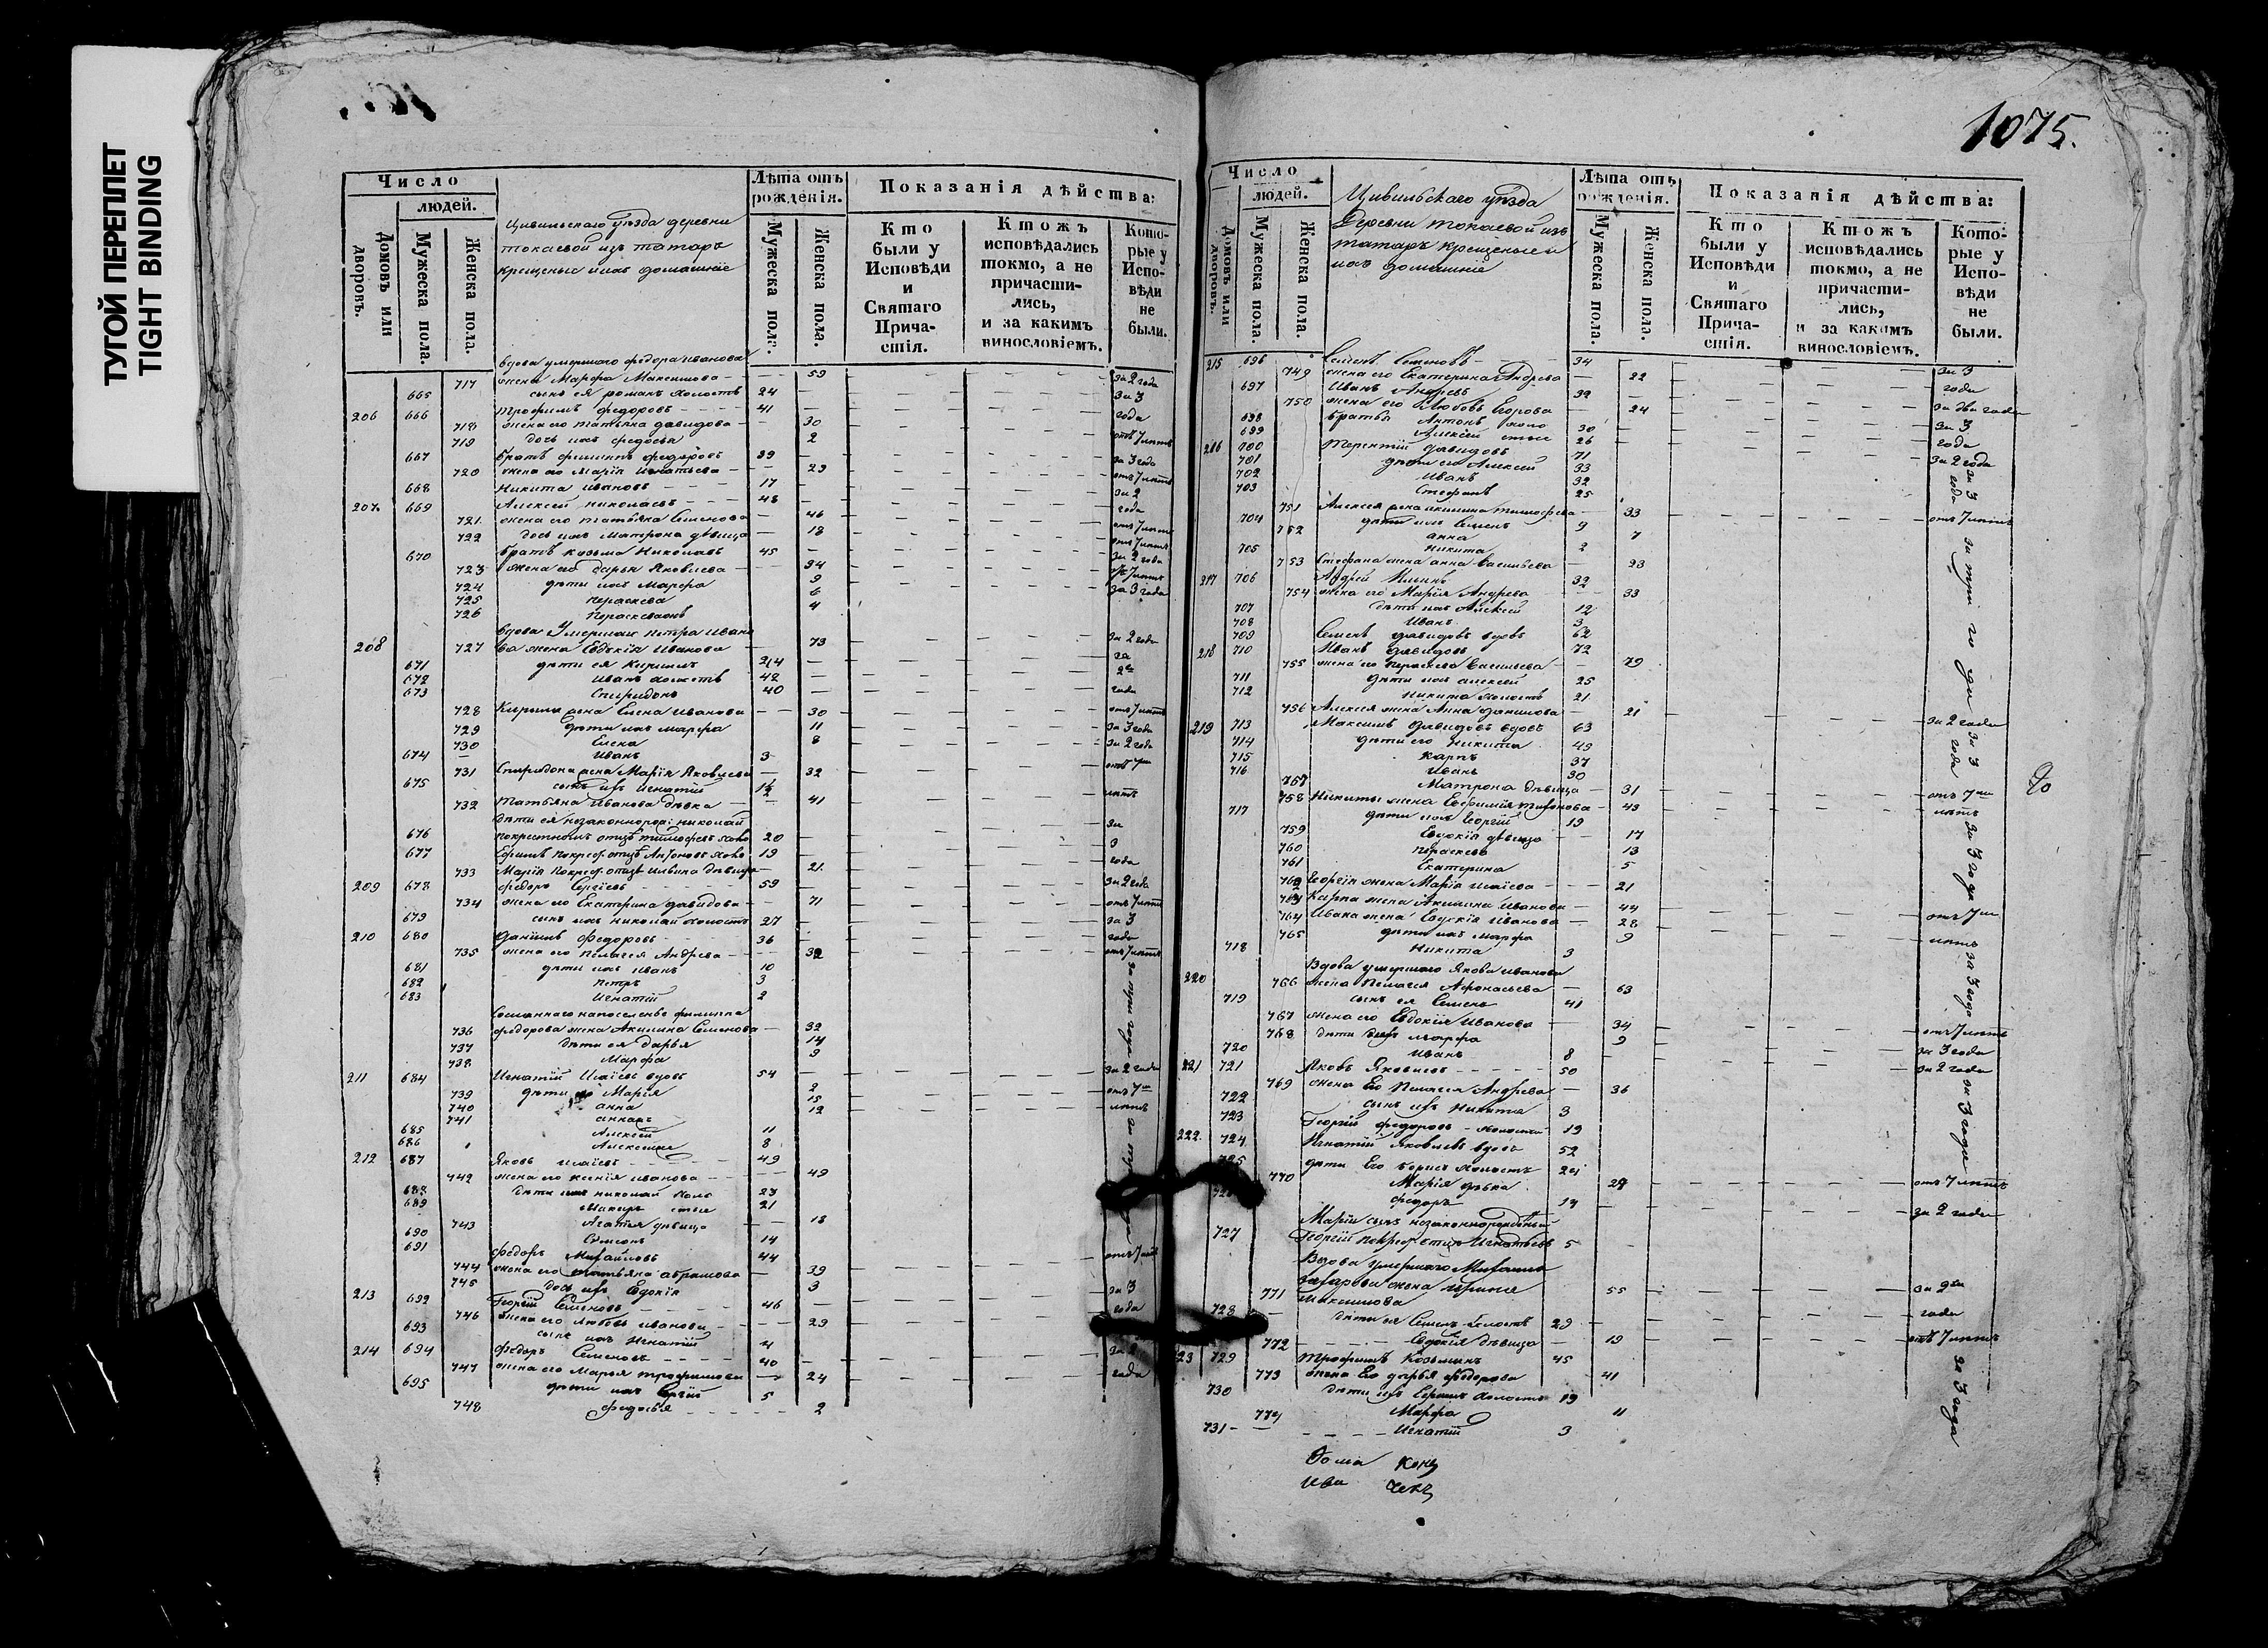 ТУГОЙ ПЕРЕПЛЕТ
TIGHT BINDING
1075.
Число
людей.
Домовъ или дворовъ.
Мужеска пола.
Женска пола.
Цивильскаго уѣзда деревни
токаевой изъ татаръ
крещеные и ихъ домашніе
Лѣта отъ рожденія.
Мужеска пола.
Женска пола.
Показанія дѣйства:
Кто были у Исповѣди и Святаго Причастія.
Ктожъ исповѣдались токмо, а не причастились, и за какимъ винословіемъ.
Которые у Исповѣди не были.
вдова умершаго федора иванова
717 жена Марфа Максимова 59 за 2 года
665 сынъ ея романъ холостъ 24 за 3
206 666 Трофимъ федоровъ 41 года
718 жена его татьяна давидова 30
719 дочь ихъ федосья 2 отъ 7 лѣтъ
667 братъ филиппъ федоровъ 39
720 жена его Марія Игнатьева 29 за 3 года
668 Никита ивановъ 17 отъ 7 лѣтъ
207 669 Алексей николаевъ 48 за 2
721 жена его татьяна Семенова 46 года
722 дочь ихъ матрона дѣвица 18 отъ 7 лѣтъ
670 братъ козьма Николаевъ 45
723 жена его дарья Яковлева 34 за 2 года
724 дѣти ихъ Марфа 9
725 параскева 6 за 3 года
726 4
вдова Умершаго петра Ивано
208 727 ва жена Евдокія Иванова 73 за 2 года
671 дѣти ея Кирилъ
672 иванъ холостъ 42
673 Спиридонъ 40 года
728 Кирила жена Елена Иванова 30 отъ 7 лѣтъ
729 дѣти ихъ марфа 11 за 3 года
730 Елена 8 за 2 года
674 Иванъ 3
731 Спиридона жена Марія Яковлева 32
675 сынъ ихъ Игнатій
732 Татьяна Иванова дѣвка 41 лѣтъ
дѣти ея незаконнорож: николай
676 покрестному отцѣ тимофеевъ холо 20 за
677 Ефимъ покрест. отцѣ Антоновъ холо 19 3
733 Марія покрест. отцѣ Ильина дѣвица 21 года
209 678 федоръ Сергіевъ 59 за 2 года
734 жена его Екатерина давидова 71 отъ 7 лѣтъ
679 сынъ ихъ николай холостъ 27 за 3
210 680 Даніилъ федоровъ 36 года
735 жена его Пелагея Андреева 32 отъ 7 лѣтъ
681 дѣти ихъ иванъ 10
682 петръ 3
683 Игнатій 2
Сосланнаго напоселеніе филиппа
736 федорова жена Акилина Семенова 32
737 дѣти ея дарья 14
738 Марфа 9
211 684 Игнатій Исаіевъ вдовъ 54 за 2 года
739 дѣти его Марія 2 отъ 7
740 анна 15 лѣтъ
741 12
685 Алексей 11
686 8
212 687 Яковъ исаіевъ 49
742 жена его ксенія иванова 49
688 дѣти ихъ николай холо 23
689 Макаръ стые 21
743 Агатья дѣвица 18
690 Симеонъ 14
691 федоръ Михайловъ 44
744 жена его татьяна абрамова 39
745 дочь ихъ Евдокія 3
213 692 Георгій Семеновъ 46 за 3
746 жена его любовь иванова 29 года
693 сынъ ихъ Игнатій 4
214 694 федоръ Семеновъ 40
747 жена его Марья трофимова 24 года
695 дѣти ихъ Сергій 5
748 федосья 2
Число
людей.
Домовъ или дворовъ.
Мужеска пола.
Женска пола.
Цивильскаго уѣзда
Деревни токаевой изъ
татаръ крещеные и
ихъ домашніе
Лѣта отъ рожденія.
Мужеска пола.
Женска пола.
Показанія дѣйства:
Кто были у Исповѣди и Святаго Причастія.
Ктожъ исповѣдались токмо, а не причастились, и за какимъ винословіемъ.
Которые у Исповѣди не были.
215 696 Семенъ Семеновъ 34 за 3
749 жена его Екатерина Андреева 22 года
697 Иванъ Андреевъ 32
750 жена его Любовь Егорова 24 за два года
698 братья Антонъ холо 30 за 3
699 Алексей стые 26 года
216 700 Терентій давидовъ 71 за 2 года
701 дѣти его Алексей 33
702 Иванъ 32
703 Стефанъ 25
751 Алексея жена акилина тимофеева 33 отъ 7 лѣтъ
704 дѣти ихъ Семенъ 9
752 анна 7
705 никита 2
753 Стефана жена анна васильева 23
217 706 Андрей Ильинъ 32
754 жена его Марія Андреева 33
707 дѣти ихъ Алексей 12
708 Иванъ 3
709 Семенъ давидовъ вдовъ 62
218 710 Иванъ давидовъ 72
755 жена его параскева васильева 79
711 дѣти ихъ алексей 25
712 никита холостъ 21
756 Алексея жена Анна данилова 21
219 713 Максимъ давидовъ вдовъ 63 за 2 года
714 дѣти его Никита 49
715 карпъ 37
716 иванъ 30
757 Матрона дѣвица 31
758 Никиты жена Евфимія тихонова 49 отъ 7
717 дѣти ихъ Георгій 19 лѣтъ
759 Евдокія дѣвица 17
760 параскева 13
761 Екатерина 5
762 Георгія жена Марія исаіева 21
763 Карпа жена Акилина Иванова 44
764 Ивана жена Евдокія Иванова 28 отъ 7
765 дѣти ихъ марфа 9 лѣтъ
718 Никита 3
Вдова умершаго Якова иванова
220 766 жена Пелагея Афонасьева 63
719 сынъ ея Семенъ 41
767 жена его Евдокія Иванова 34 отъ 7 лѣтъ
768 дѣти ихъ марфа 9
720 Иванъ 8 за 3 года
221 721 Яковъ Яковлевъ 50 за 2 года
769 жена Его Пелагея Андреева 36
722 сынъ ихъ Никита 3
723 Георгій федоровъ холостъ 19
222 724 Игнатій Яковлевъ вдовъ 52
725 дѣти Его борисъ холостъ 24
770 Марія дѣвка отъ 7 лѣтъ
726 федоръ 14 за 2 года
Маріи сынъ незаконнорожденый
727 Георгій покрест. отцѣ Игнатьевъ 5
Вдова умершаго Михаила
захарова жена ирина
771 максимова 55 за 2
728 дѣти ея Семенъ холостъ 29 года
772 Евдокія дѣвица 19 отъ 7 лѣтъ
23 729 Трофимъ Козьминъ 45
773 жена Его дарья федорова 41
730 дѣти ихъ Сергій холостъ 19
774 Марфа 11
731 Игнатій 3
за три года
за 3 года
Ѳома
Ива